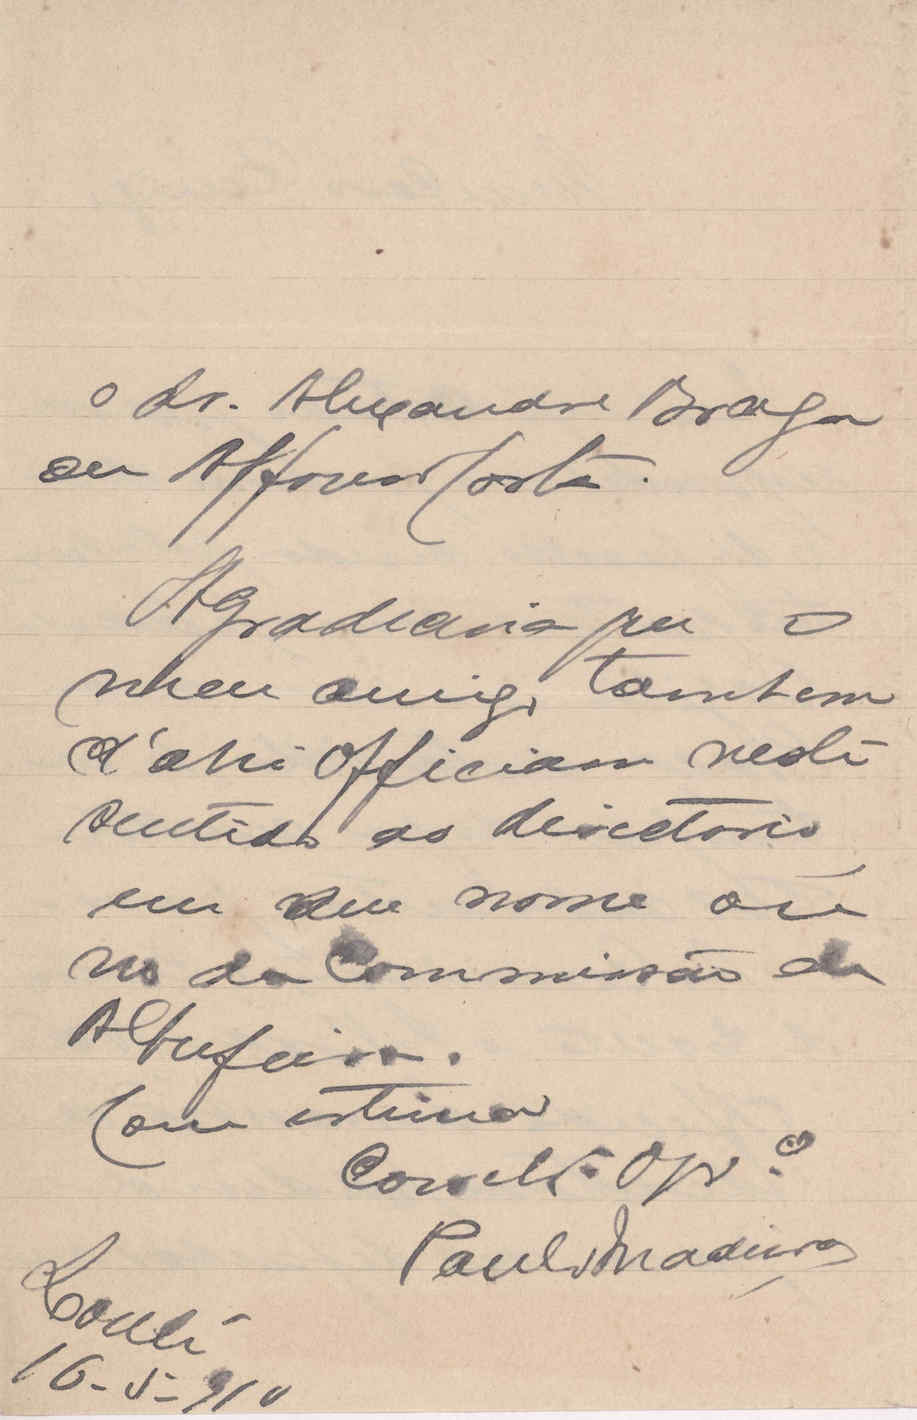 o Dr. Alexandre Braga
ou Affonso Costa.
Agradeceria que o
meu amigo tambem
d'ahi officiasse neste
sentido ao directorio
em seu nome ou
no da Commissão de
Albufeira.
Com estima
Paulo Madeira
Loulé
16-5-910